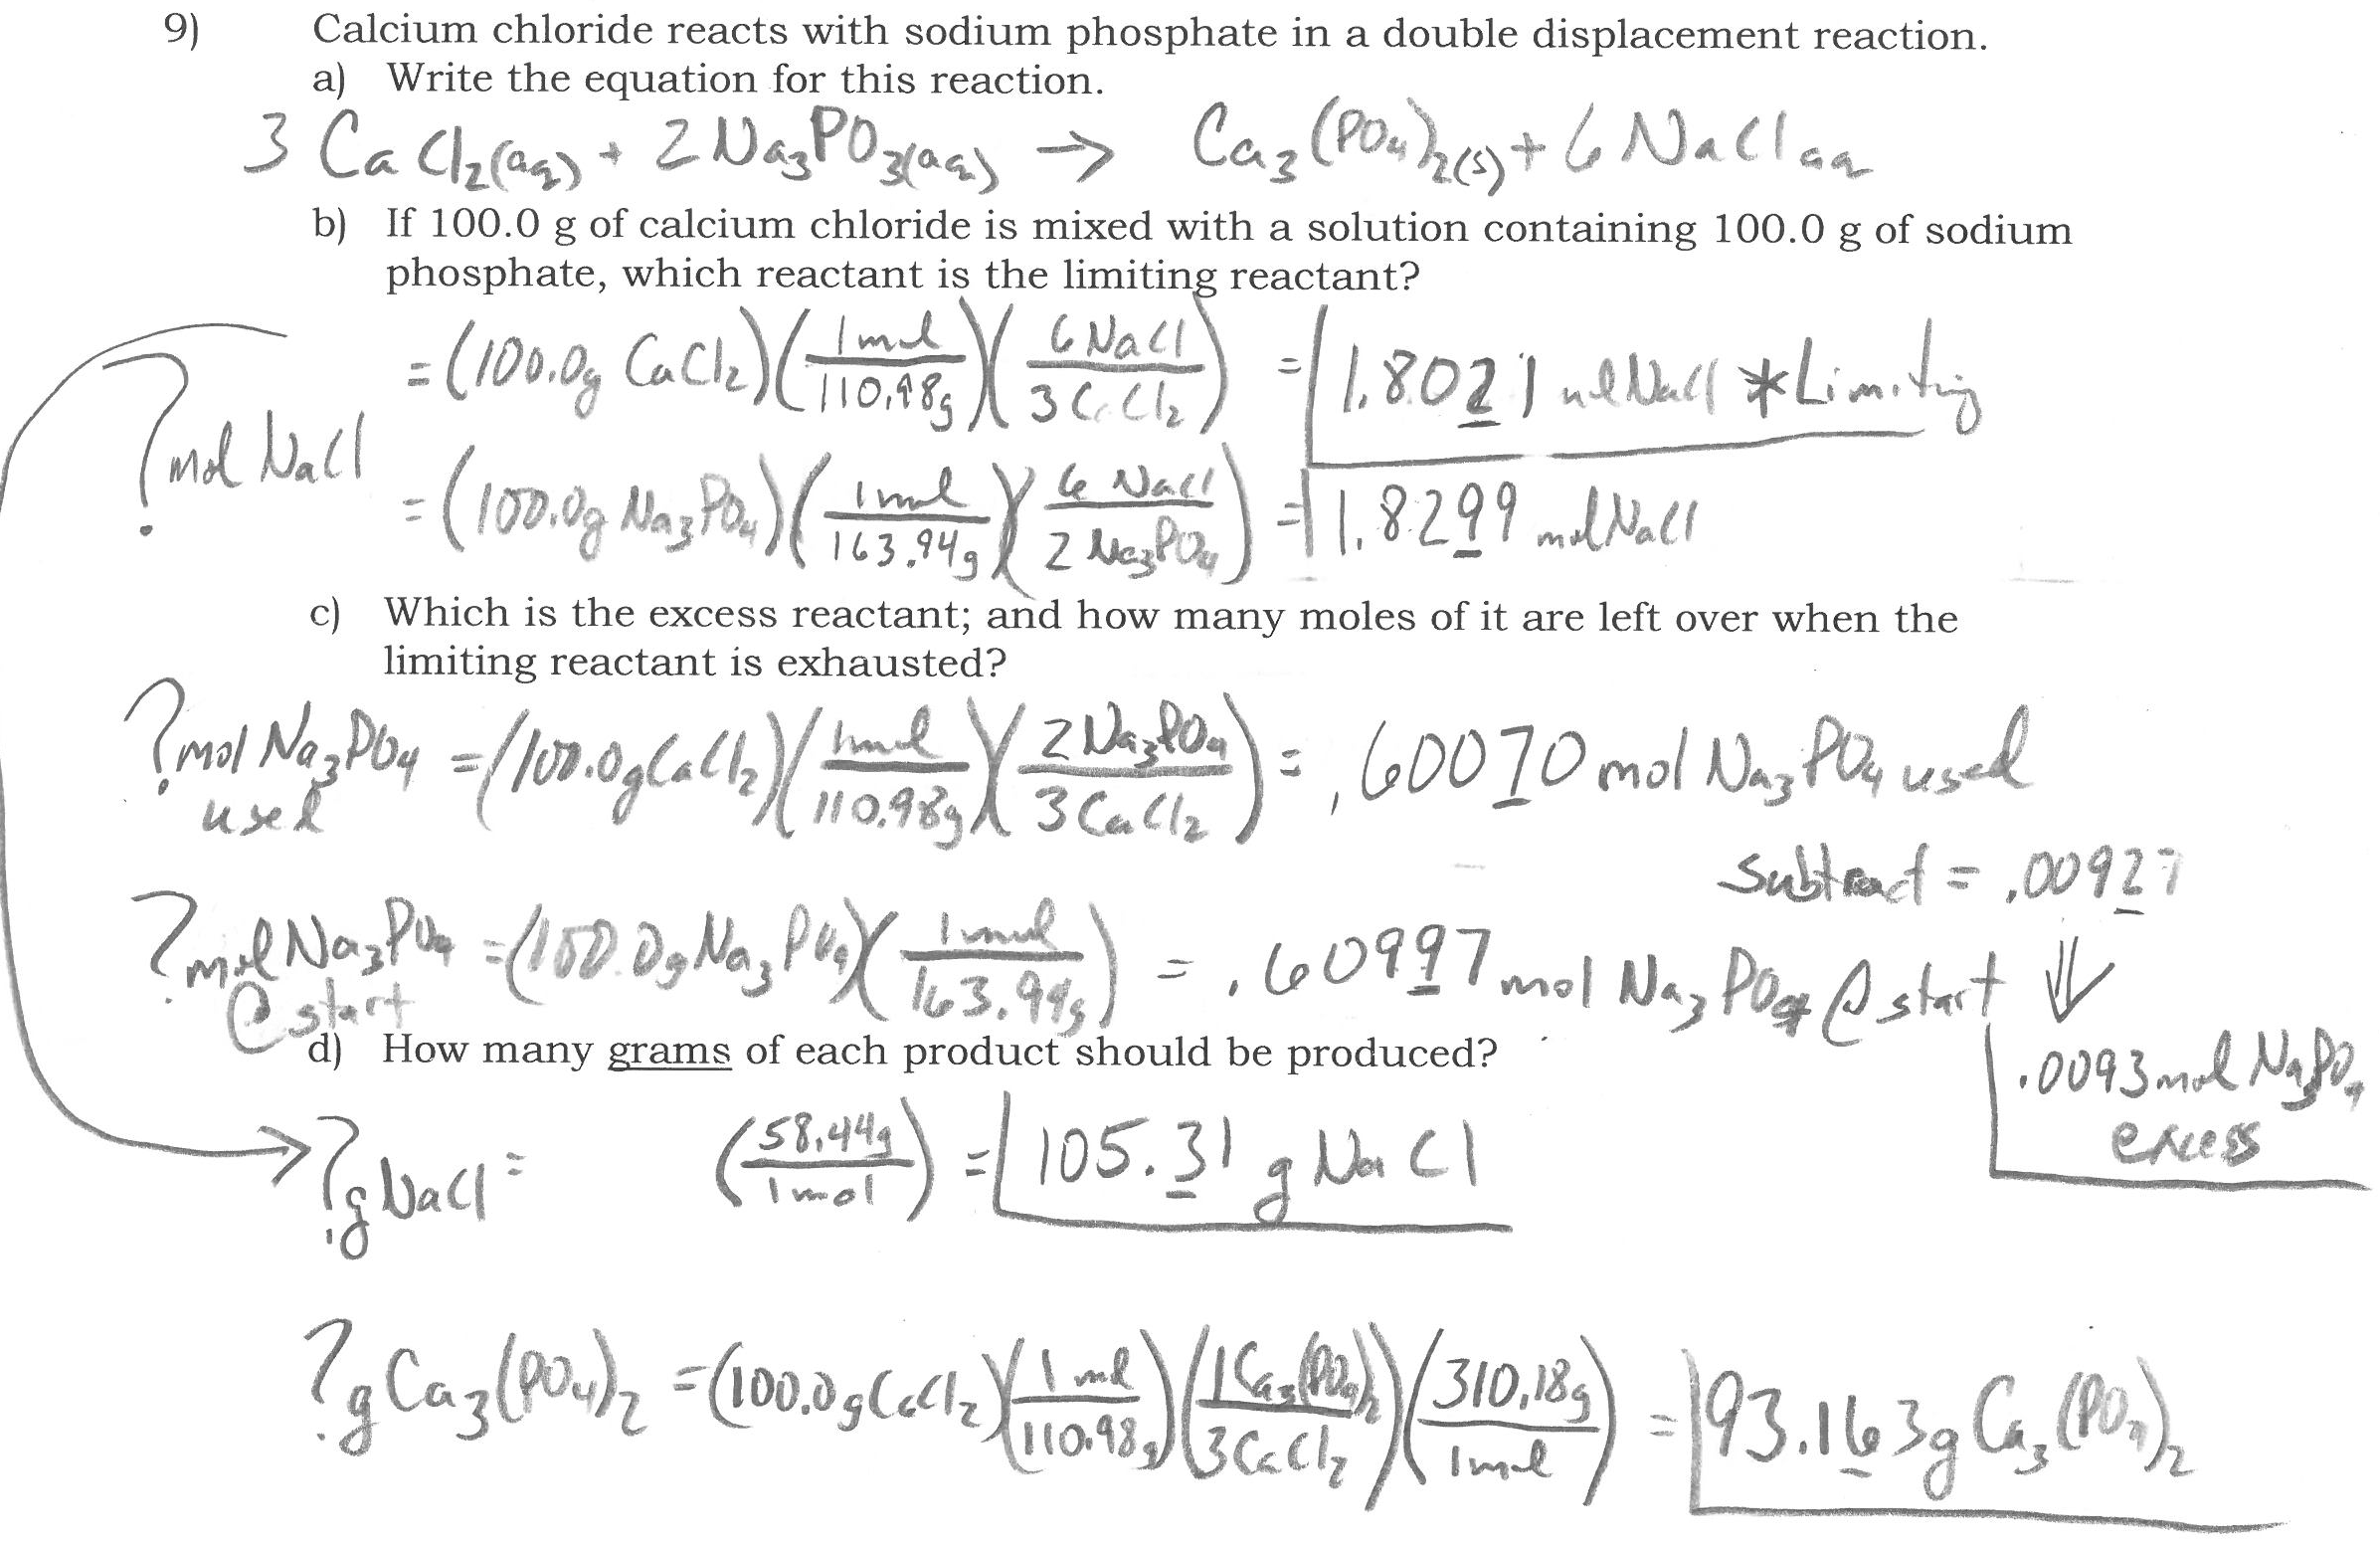 9) Calcium chloride reacts with sodium phosphate in a double displacement reaction.
a) Write the equation for this reaction.
3 CaCl₂(aq) + 2 Na₃PO₃(aq) → Ca₃(PO₄)₂(s) + 6 NaCl aq
b) If 100.0 g of calcium chloride is mixed with a solution containing 100.0 g of sodium
phosphate, which reactant is the limiting reactant?
? mol NaCl
= (100.0g CaCl₂)(1 mol / 110.98g)(6 NaCl / 3 CaCl₂) = 1.8021 mol NaCl *Limiting
= (100.0g Na₃PO₄)(1 mol / 163.94g)(6 NaCl / 2 Na₃PO₄) = 1.8299 mol NaCl
c) Which is the excess reactant; and how many moles of it are left over when the
limiting reactant is exhausted?
? mol Na₃PO₄ used = (100.0g CaCl₂)(1 mol / 110.98g)(2 Na₃PO₄ / 3 CaCl₂) = .60070 mol Na₃PO₄ used
subtract = .00927
? mol Na₃PO₄ @ start = (100.0g Na₃PO₄)(1 mol / 163.94g) = .60997 mol Na₃PO₄ @ start ⇓
.0093 mol Na₃PO₄
excess
d) How many grams of each product should be produced?
? g NaCl = (58.44g / 1 mol) = 105.31 g NaCl
? g Ca₃(PO₄)₂ = (100.0g CaCl₂)(1 mol / 110.98g)(1 Ca₃(PO₄)₂ / 3 CaCl₂)(310.18g / 1 mol) = 93.163g Ca₃(PO₄)₂